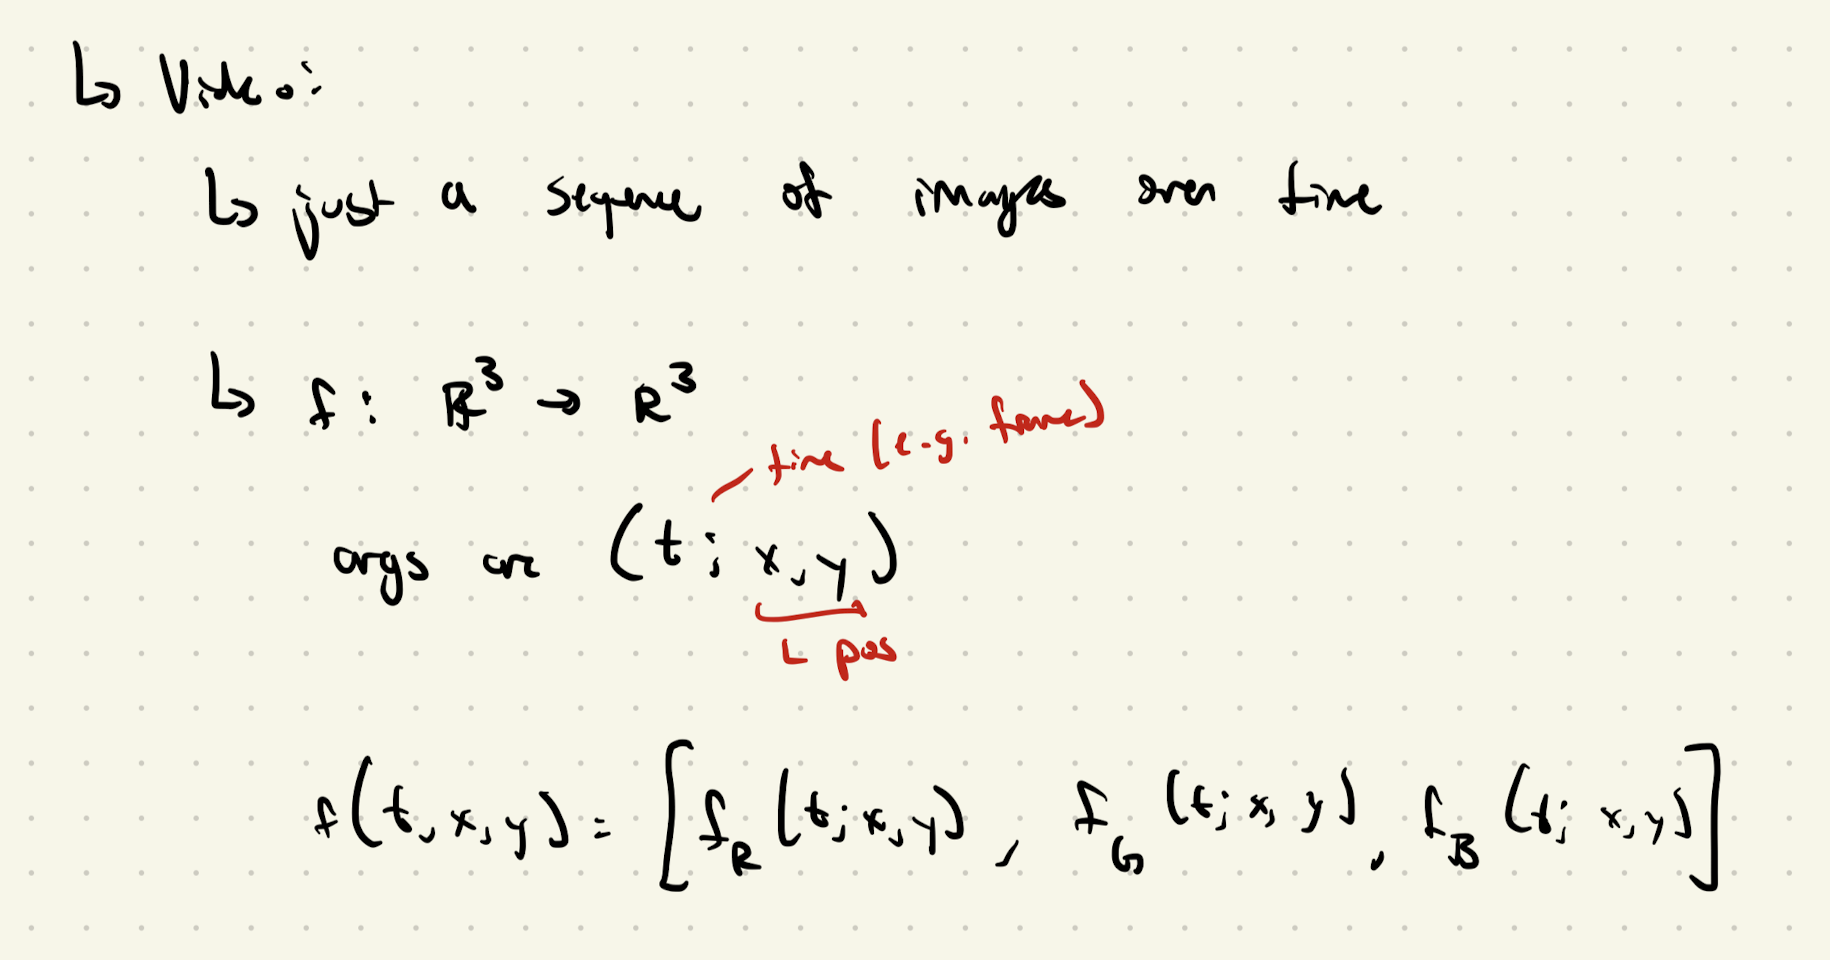 ↳ Video:
↳ just a sequence of images over time
↳ f: ℝ³ → ℝ³
time (e.g. frame)
args are (t; x, y)
pos
f(t, x, y) = [f_R (t; x, y), f_G (t; x, y), f_B (t; x, y)]